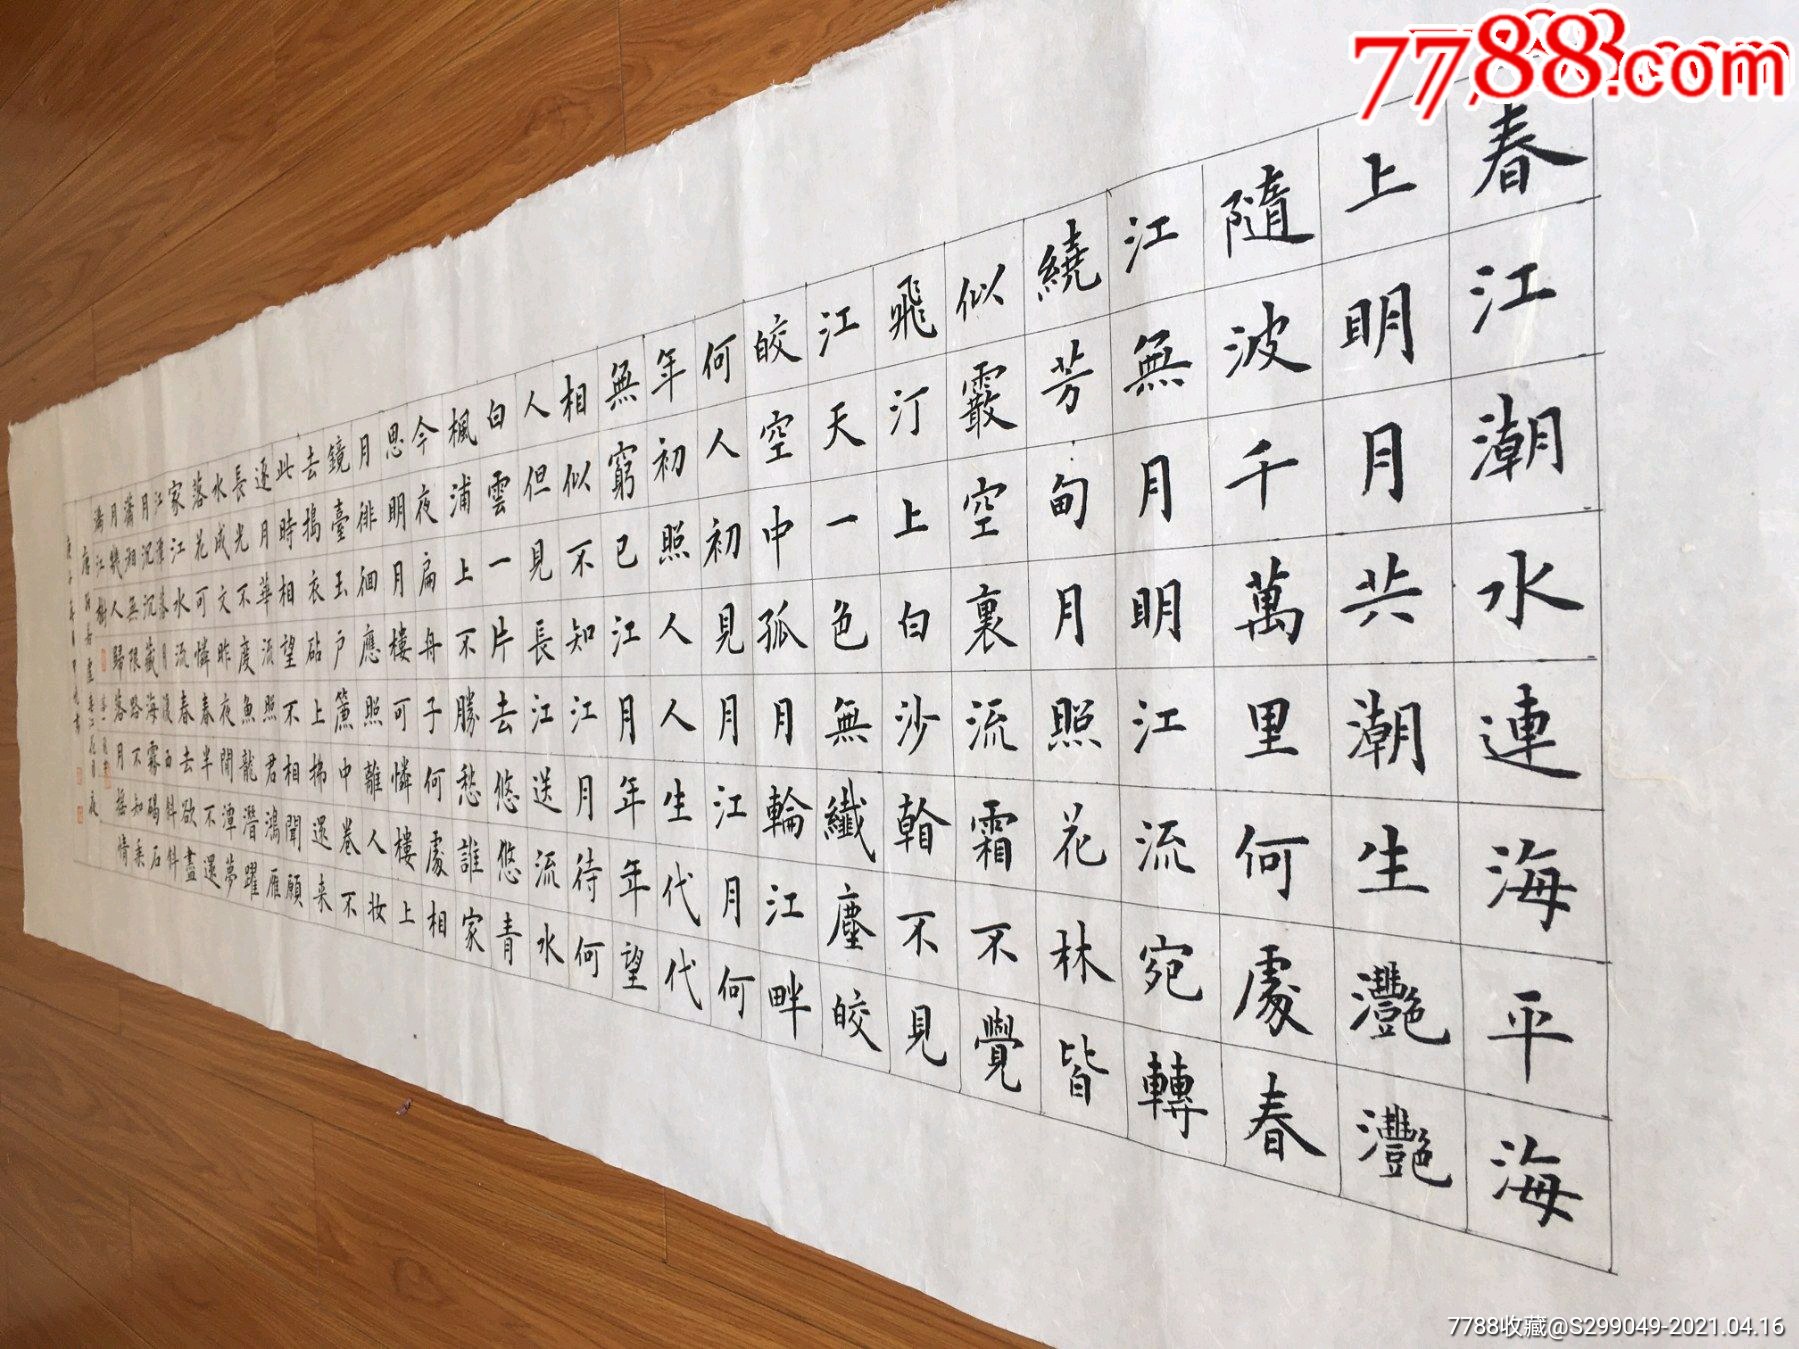 7788.com
春江潮水連海平海
上明月共潮生灩灩
隨波千萬里何處春
江無月明江流宛轉
繞芳甸月照花林皆
似霰空裏流霜不覺
飛汀上白沙看不見
江天一色無纖塵皎
皎空中孤月輪江畔
何人初見月江月何
年初照人人生代代
無窮已江月年年望
相似不知江月待何
人但見長江送流水
白雲一片去悠悠青
楓浦上不勝愁誰家
今夜扁舟子何處相
思明月樓可憐樓上
月徘徊應照離人妝
鏡臺玉戶簾中卷不
去搗衣砧上拂還来
此時相望不相聞願
逐月華流照君鴻雁
長光不度魚龍潛躍
水成文昨夜閒潭夢
落花可憐春半不還
家江水流春去欲盡
江潭落月復西斜斜
月沉沉藏海霧碣石
瀟湘無限路不知乘
月幾人歸落月搖情
滿江樹
唐張若虛春江花月夜
7788收藏@S299049-2021.04.16